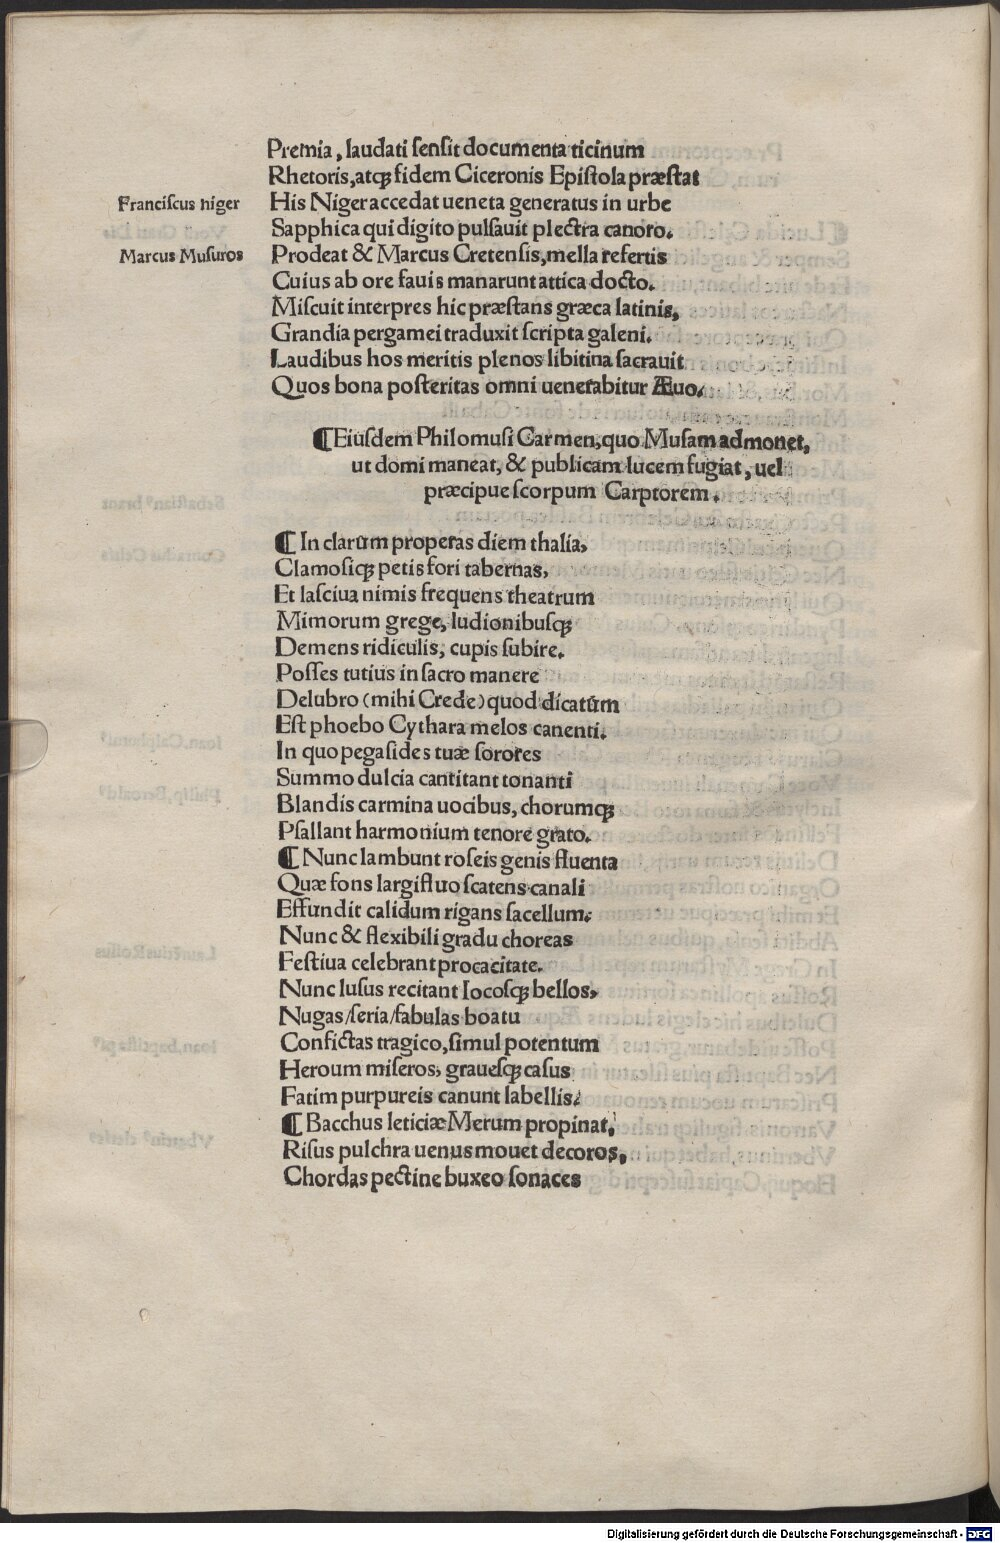 Premia, laudati sensit documenta ticinum
Rhetoris, atqꝫ fidem Ciceronis Epistola præstat
Franciscus niger
His Niger accedat ueneta generatus in urbe
Sapphica qui digito pulsauit plectra canoro.
Marcus Musuros
Prodeat & Marcus Cretensis, mella refertis
Cuius ab ore fauis manarunt attica docto.
Miscuit interpres hic præstans græca latinis,
Grandia pergamei traduxit scripta galeni.
Laudibus hos meritis plenos libitina sacrauit
Quos bona posteritas omni uenerabitur Æuo.
¶ Eiusdem Philomusi Carmen, quo Musam admonet,
ut domi maneat, & publicam lucem fugiat, uel
præcipue scorpum Carptorem.
¶ In clarum properas diem thalia,
Clamosiqꝫ petis fori tabernas,
Et lasciua nimis frequens theatrum
Mimorum grege, ludionibusqꝫ
Demens ridiculis, cupis subire.
Posses tutius in sacro manere
Delubro (mihi Crede) quod dicatūm
Est phoebo Cythara melos canenti.
In quo pegasides tuæ sorores
Summo dulcia cantitant tonanti
Blandis carmina uocibus, chorumqꝫ
Psallant harmonium tenore grato.
¶ Nunc lambunt roseis genis fluenta
Quæ fons largifluo scatens canali
Effundit calidum rigans sacellum.
Nunc & flexibili gradu choreas
Festiua celebrant procacitate.
Nunc lusus recitant Iocosqꝫ bellos,
Nugas/seria/fabulas boatu
Confictas tragico, simul potentum
Heroum miseros, grauesqꝫ casus
Fatim purpureis canunt labellis.
¶ Bacchus leticiæ Merum propinat,
Risus pulchra uenus mouet decoros,
Chordas pectine buxeo sonaces
Digitalisierung gefördert durch die Deutsche Forschungsgemeinschaft - DFG